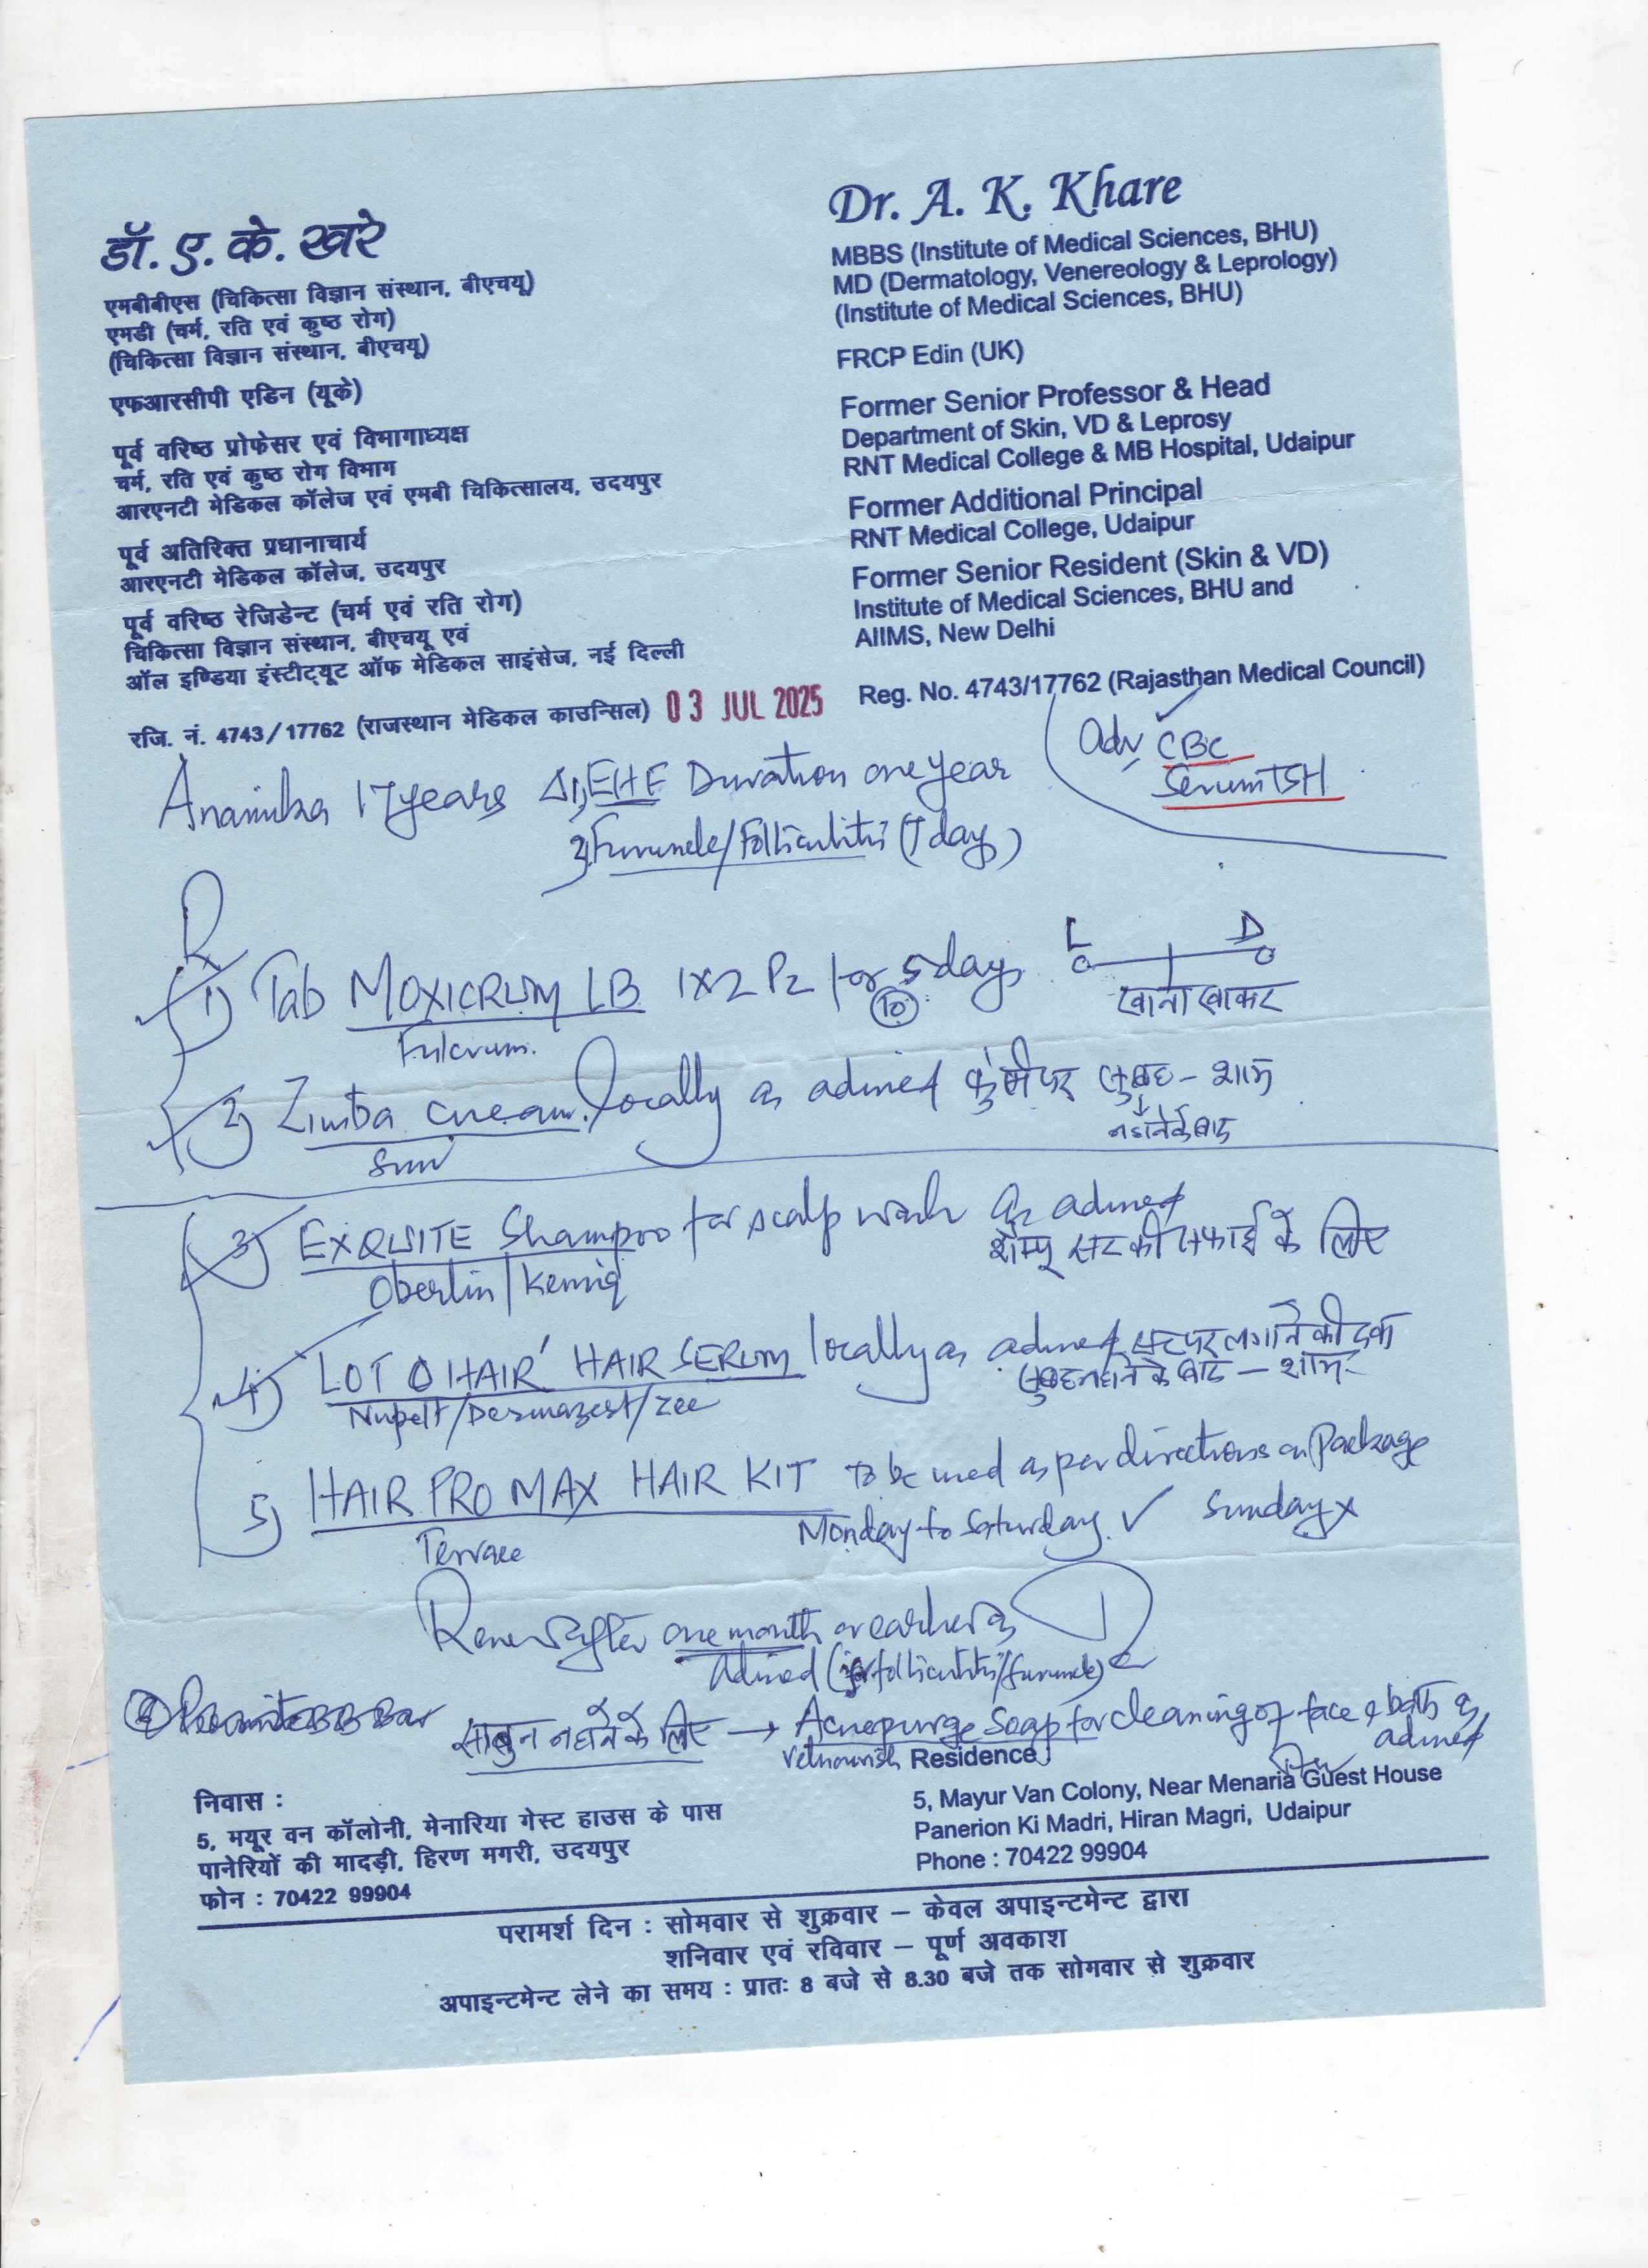 डॉ. ए. के. खरे
एमबीबीएस (चिकित्सा विज्ञान संस्थान, बीएचयू)
एमडी (चर्म, रति एवं कुष्ठ रोग)
(चिकित्सा विज्ञान संस्थान, बीएचयू)
एफआरसीपी एडिन (यूके)
पूर्व वरिष्ठ प्रोफेसर एवं विभागाध्यक्ष
चर्म, रति एवं कुष्ठ रोग विभाग
आरएनटी मेडिकल कॉलेज एवं एमबी चिकित्सालय, उदयपुर
पूर्व अतिरिक्त प्रधानाचार्य
आरएनटी मेडिकल कॉलेज, उदयपुर
पूर्व वरिष्ठ रेजिडेन्ट (चर्म एवं रति रोग)
चिकित्सा विज्ञान संस्थान, बीएचयू एवं
ऑल इण्डिया इंस्टीट्यूट ऑफ मेडिकल साइंसेज, नई दिल्ली
रजि. नं. 4743/17762 (राजस्थान मेडिकल काउन्सिल)
Dr. A. K. Khare
MBBS (Institute of Medical Sciences, BHU)
MD (Dermatology, Venereology & Leprology)
(Institute of Medical Sciences, BHU)
FRCP Edin (UK)
Former Senior Professor & Head
Department of Skin, VD & Leprosy
RNT Medical College & MB Hospital, Udaipur
Former Additional Principal
RNT Medical College, Udaipur
Former Senior Resident (Skin & VD)
Institute of Medical Sciences, BHU and
AIIMS, New Delhi
Reg. No. 4743/17762 (Rajasthan Medical Council)
03 JUL 2025
Adv CBC
Serum TSH
Anamika 17 years Δ 1) EHF Duration one year
2) Furuncle/Folliculitis (7 days)
Rx
1) Tab MOXICRUM LB 1x2 Pz for 5 days L D
Fulcrum. 10 खाना खाकर
2) Zimba cream. locally as advised फुंसी पर सुबह - शाम
Sun नहाने के बाद
3) EXQUITE Shampoo for scalp wash as advised
Oberlin/Kemiq शैम्पू सर की सफाई के लिए
4) LOT O HAIR HAIR SERUM locally as advised सर पर लगाने की दवा
Nupelt/Dermazest/Zee सुबह नहाने के बाद - शाम
5) HAIR PRO MAX HAIR KIT to be used as per directions on Package
Terrace Monday to Saturday ✓ Sunday x
Renew after one month or earlier as
advised (for folliculitis/furuncle)
साबुन नहाने के लिए → Acnepurge Soap for cleaning of face & bath as
advised
निवास :
5, मयूर वन कॉलोनी, मेनारिया गेस्ट हाउस के पास
पानेरियों की मादड़ी, हिरण मगरी, उदयपुर
फोन : 70422 99904
Residence
5, Mayur Van Colony, Near Menaria Guest House
Panerion Ki Madri, Hiran Magri, Udaipur
Phone : 70422 99904
परामर्श दिन : सोमवार से शुक्रवार – केवल अपाइन्टमेन्ट द्वारा
शनिवार एवं रविवार – पूर्ण अवकाश
अपाइन्टमेन्ट लेने का समय : प्रातः 8 बजे से 8.30 बजे तक सोमवार से शुक्रवार